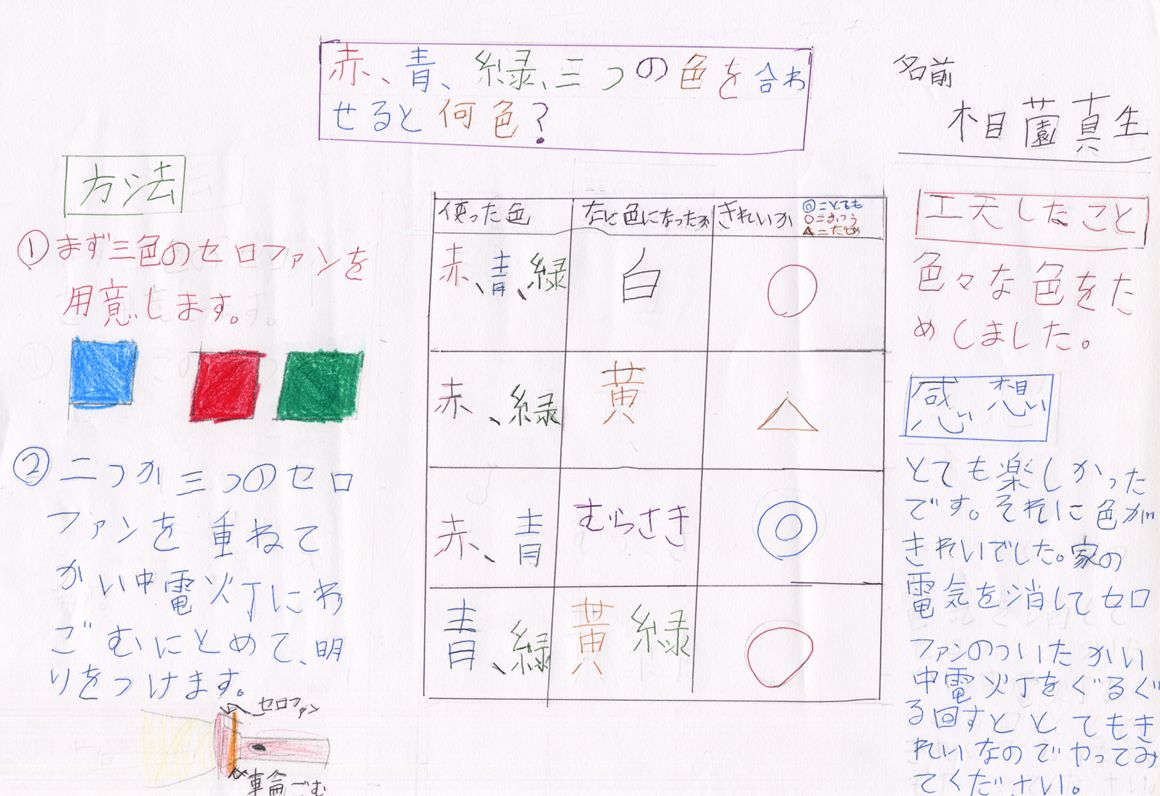 赤、青、緑、三つの色を合わ
せると何色?
名前
相薗真生
方法
① まず三色のセロファンを
用意します。
② 二つか三つのセロ
ファンを重ねて
かい中電灯にわ
ごむにとめて、明
りをつけます。
セロファン
車輪ごむ
使った色 なに色になったか きれいか ◎=とても
○=ふつう
△=だめ
赤、青、緑 白 ○
赤、緑 黄 △
赤、青 むらさき ◎
青、緑 黄緑 ○
工夫したこと
色々な色をた
めしました。
感想
とても楽しかった
です。それに色が
きれいでした。家の
電気を消してセロ
ファンのついたかい
中電灯をぐるぐ
る回すととてもき
れいなのでやってみ
てください。